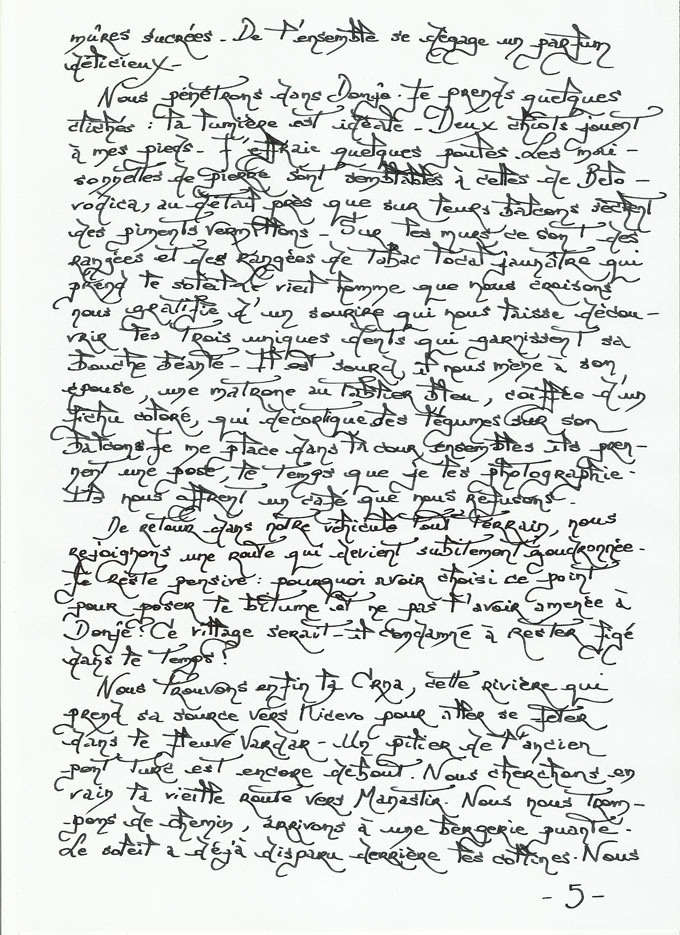 mûres sucrées - De l'ensemble se dégage un parfum
délicieux -
Nous pénétrons dans Donje. Je prends quelques
clichés : la lumière est idéale - Deux chiots jouent
à mes pieds - J'effraie quelques poules. Les mai-
sonnettes de pierre sont semblables à celles de Belo-
vodica, au détail près que sur leurs balcons sèchent
des piments vermillons - Sur les murs ce sont des
rangées et des rangées de tabac local jaunâtre qui
prend le soleil - Le vieil homme que nous croisons
nous gratifie d'un sourire qui nous laisse décou-
vrir les trois uniques dents qui garnissent sa
bouche béante - Il est sourd, il nous mène à son
épouse, une matrone au tablier bleu, coiffée d'un
fichu coloré, qui décortique des légumes sur son
balcon. Je me place dans la cour, ensembles ils pren-
nent une pose, le temps que je les photographie -
Ils nous offrent un café que nous refusons -
De retour dans notre véhicule tout terrain, nous
rejoignons une route qui devient subitement goudronnée -
Je reste pensive : pourquoi avoir choisi ce point
pour poser le bitume et ne pas l'avoir amenée à
Donje ? Ce village serait-il condamné à rester figé
dans le temps ?
Nous trouvons enfin la Crna, cette rivière qui
prend sa source vers Nicevo pour aller se jeter
dans le fleuve Vardar - Un pilier de l'ancien
pont turc est encore debout. Nous cherchons en
vain la vieille route vers Manastir. Nous nous trom-
pons de chemin, arrivons à une bergerie puante -
Le soleil a déjà disparu derrière les collines. Nous
- 5 -